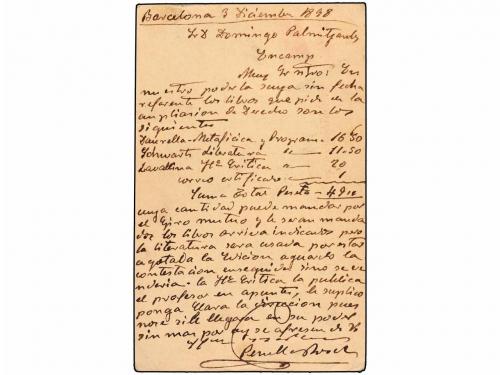 Barcelona 3 Diciembre 1898
Sr D. Domingo
Encamp
Muy Sr mio: En
nuestro poder la suya sin fecha
referente los libros que pide en la
ampliasion de Derecho son los
siguientes
Daurella - Metafícica y Program - 16'50
Schwartz literatura - 11-50
Lavallina Hª Critica - 20
correo certificado - 1
Suma total Pesetas - 49
cuya cantidad puede mandar por
el Giro mutuo y le seran manda
dos los libros arriva indicados pero
la literatura sera usada por estar
agotada la Edicion aguardo la
contestacion enseguida sino se ve
nderia. la Hª Critica la publica
el profesor en apuntes, le suplico
ponga clara la direccion pues
no se si le llegara en su poder
sin mas por oy se ofrese de V